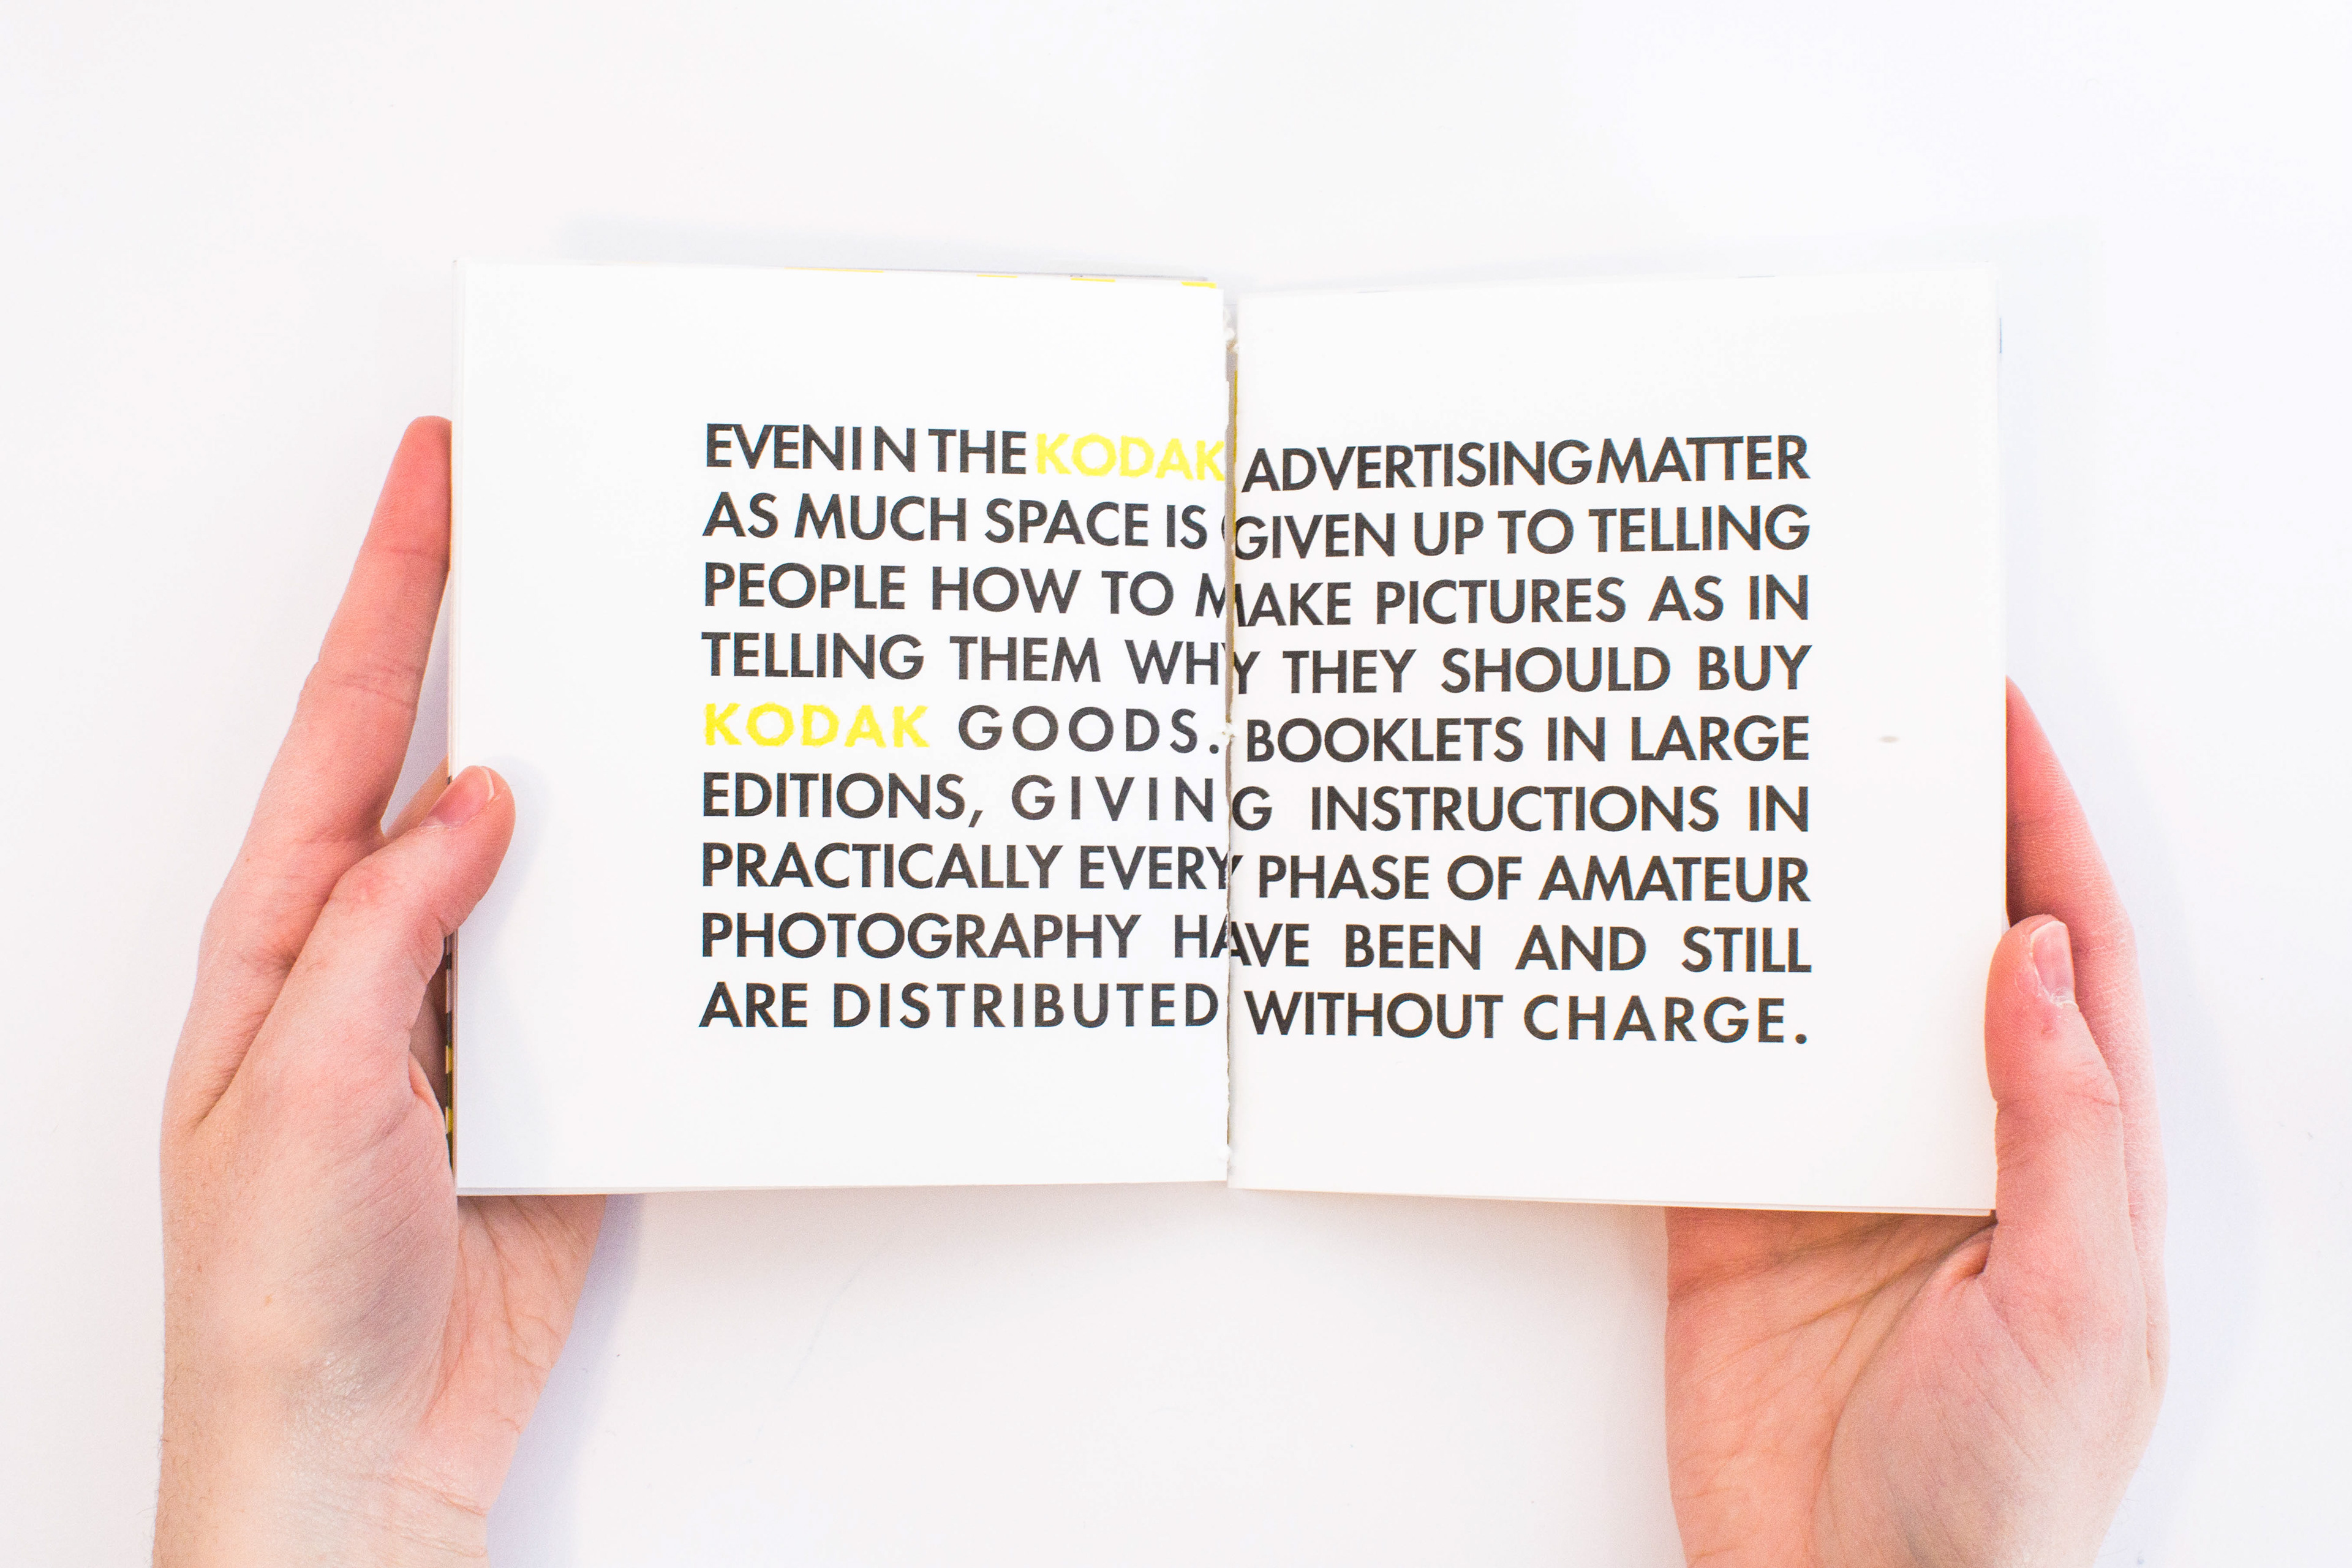 EVEN IN THE KODAK ADVERTISING MATTER
AS MUCH SPACE IS GIVEN UP TO TELLING
PEOPLE HOW TO MAKE PICTURES AS IN
TELLING THEM WHY THEY SHOULD BUY
KODAK GOODS. BOOKLETS IN LARGE
EDITIONS, GIVING INSTRUCTIONS IN
PRACTICALLY EVERY PHASE OF AMATEUR
PHOTOGRAPHY HAVE BEEN AND STILL
ARE DISTRIBUTED WITHOUT CHARGE.